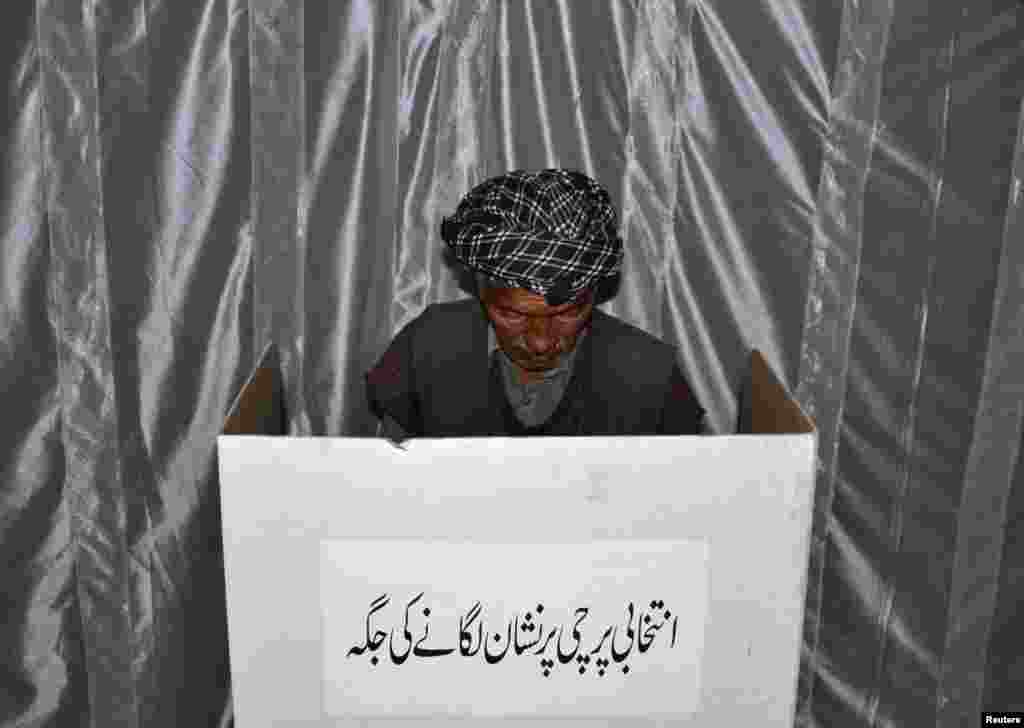 انتخابی پرچی پر نشان لگانے کی جگہ
Reuters